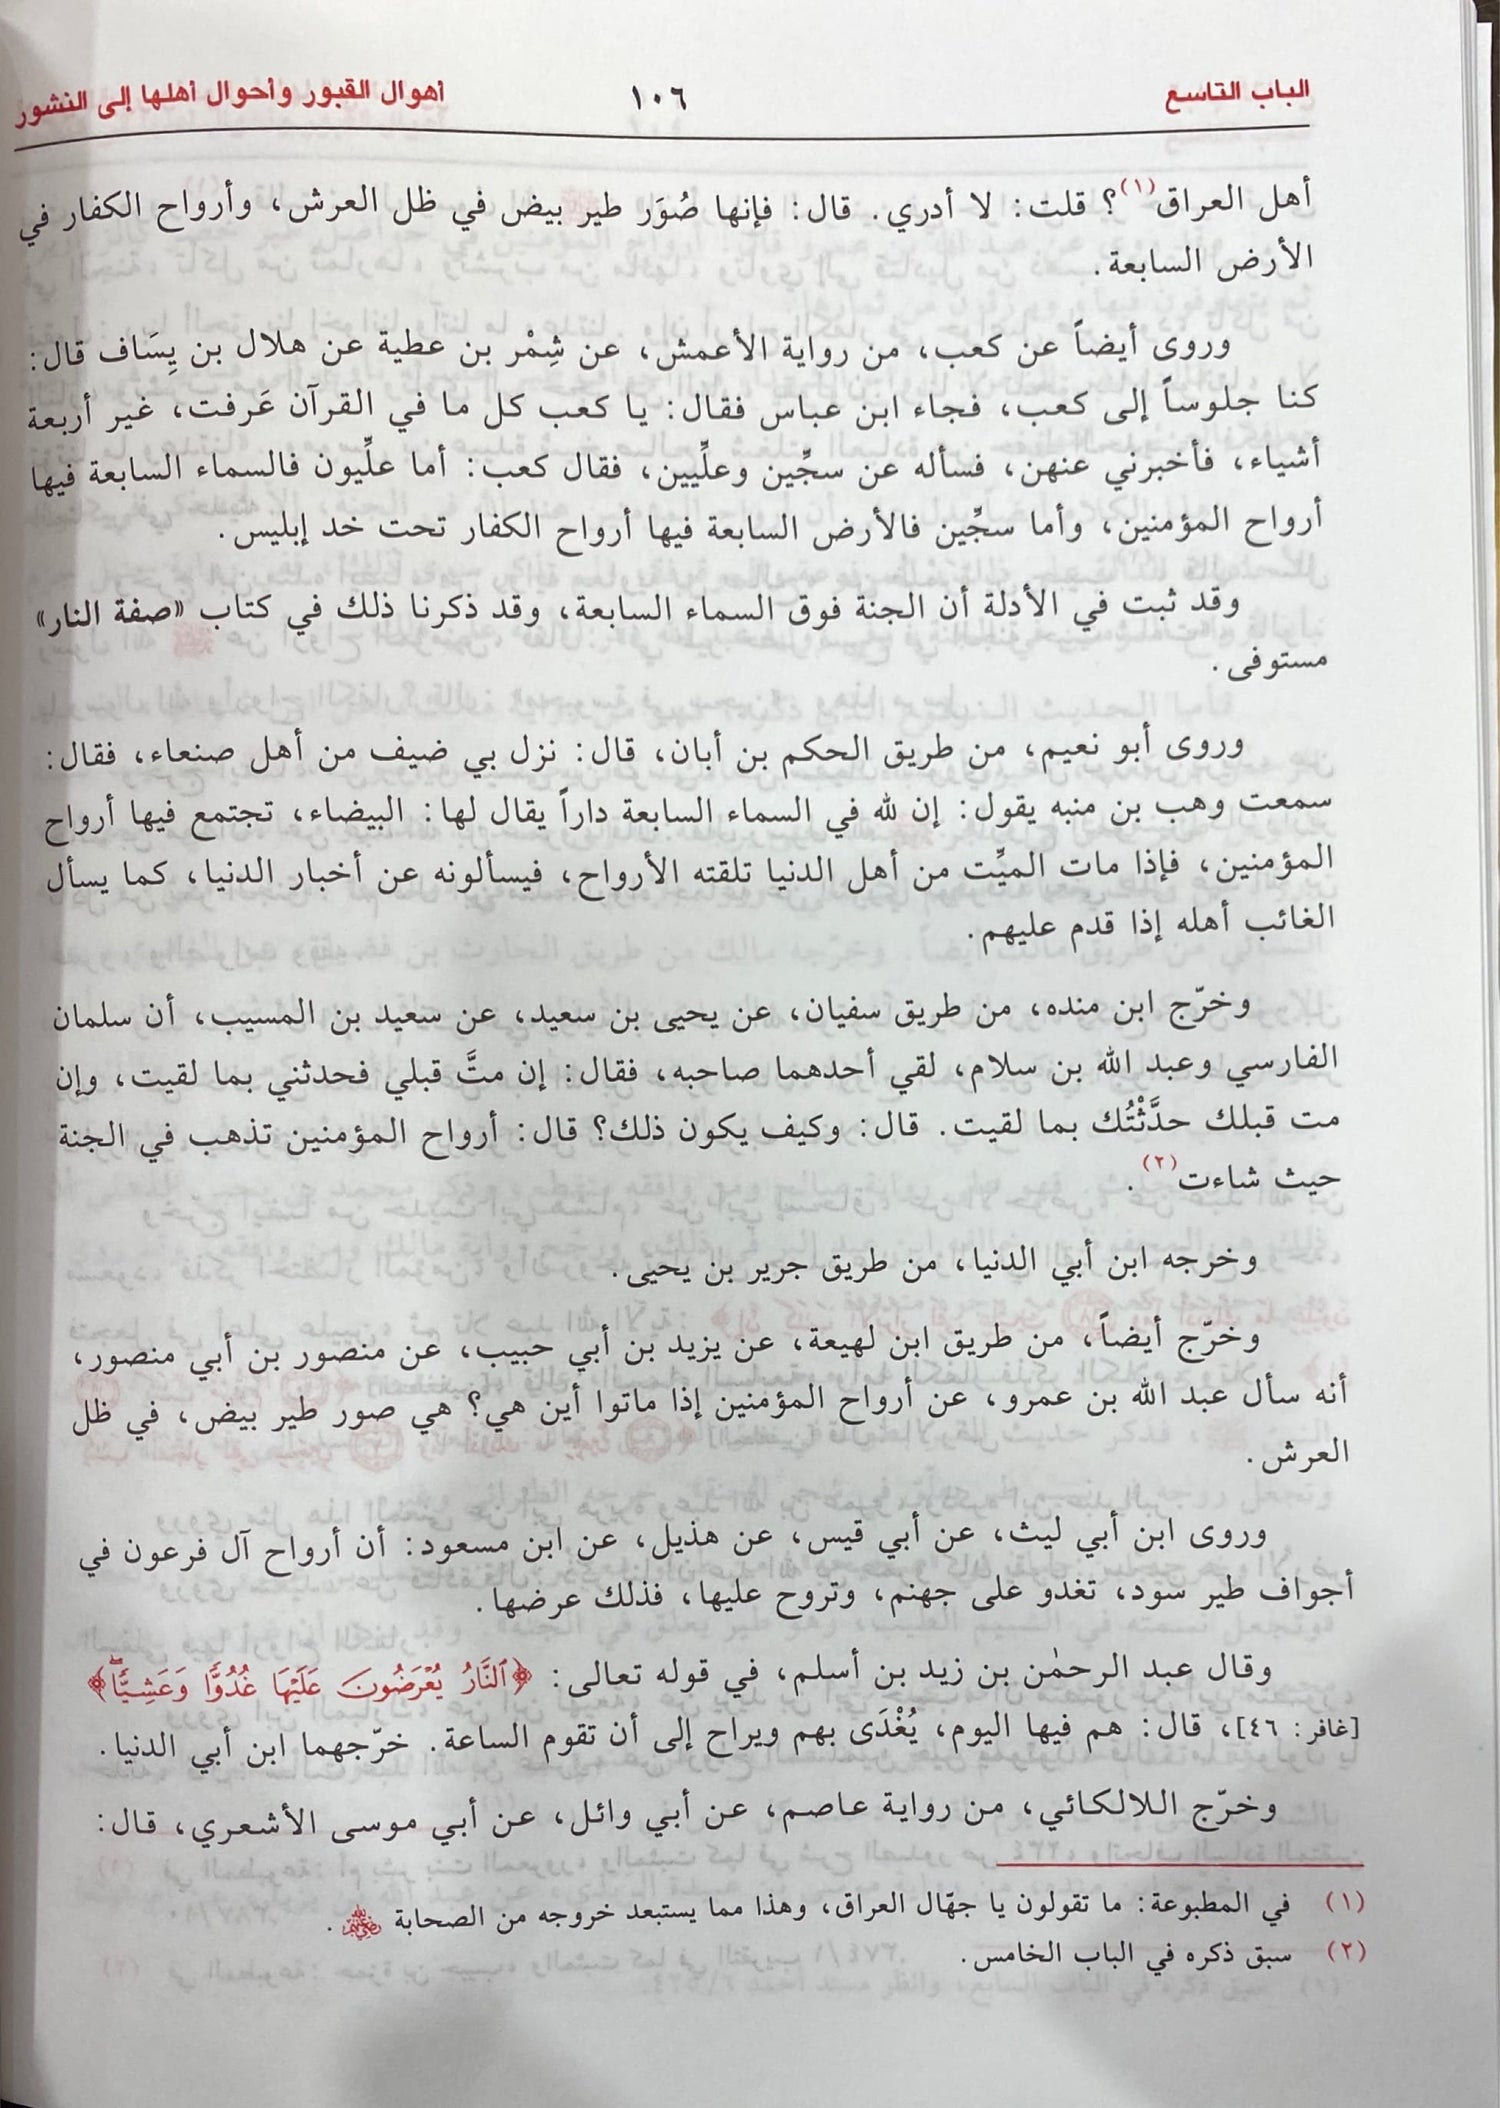 الباب التاسع ١٠٦ أهوال القبور وأحوال أهلها إلى النشور
أهل العراق(١)؟ قلت: لا أدري. قال: فإنها صُوَر طير بيض في ظل العرش، وأرواح الكفار في
الأرض السابعة.
وروى أيضاً عن كعب، من رواية الأعمش، عن شِمْر بن عطية عن هلال بن يِسَاف قال:
كنا جلوساً إلى كعب، فجاء ابن عباس فقال: يا كعب كل ما في القرآن عَرفت، غير أربعة
أشياء، فأخبرني عنهن، فسأله عن سجِّين وعلِّيين، فقال كعب: أما علِّيون فالسماء السابعة فيها
أرواح المؤمنين، وأما سجِّين فالأرض السابعة فيها أرواح الكفار تحت خد إبليس.
وقد ثبت في الأدلة أن الجنة فوق السماء السابعة، وقد ذكرنا ذلك في كتاب «صفة النار»
مستوفى.
وروى أبو نعيم، من طريق الحكم بن أبان، قال: نزل بي ضيف من أهل صنعاء، فقال:
سمعت وهب بن منبه يقول: إن لله في السماء السابعة داراً يقال لها: البيضاء، تجتمع فيها أرواح
المؤمنين، فإذا مات الميِّت من أهل الدنيا تلقته الأرواح، فيسألونه عن أخبار الدنيا، كما يسأل
الغائب أهله إذا قدم عليهم.
وخرّج ابن منده، من طريق سفيان، عن يحيى بن سعيد، عن سعيد بن المسيب، أن سلمان
الفارسي وعبد الله بن سلام، لقي أحدهما صاحبه، فقال: إن متَّ قبلي فحدثني بما لقيت، وإن
مت قبلك حدَّثْتُك بما لقيت. قال: وكيف يكون ذلك؟ قال: أرواح المؤمنين تذهب في الجنة
حيث شاءت(٢).
وخرجه ابن أبي الدنيا، من طريق جرير بن يحيى.
وخرّج أيضاً، من طريق ابن لهيعة، عن يزيد بن أبي حبيب، عن منصور بن أبي منصور،
أنه سأل عبد الله بن عمرو، عن أرواح المؤمنين إذا ماتوا أين هي؟ هي صور طير بيض، في ظل
العرش.
وروى ابن أبي ليث، عن أبي قيس، عن هذيل، عن ابن مسعود: أن أرواح آل فرعون في
أجواف طير سود، تغدو على جهنم، وتروح عليها، فذلك عرضها.
وقال عبد الرحمٰن بن زيد بن أسلم، في قوله تعالى: ﴿ٱلنَّارُ يُعْرَضُونَ عَلَيْهَا غُدُوًّا وَعَشِيًّا﴾
[غافر: ٤٦]، قال: هم فيها اليوم، يُغْدَى بهم ويراح إلى أن تقوم الساعة. خرّجهما ابن أبي الدنيا.
وخرّج اللالكائي، من رواية عاصم، عن أبي وائل، عن أبي موسى الأشعري، قال:
(١) في المطبوعة: ما تقولون يا جهّال العراق، وهذا مما يستبعد خروجه من الصحابة رضي الله عنهم.
(٢) سبق ذكره في الباب الخامس.